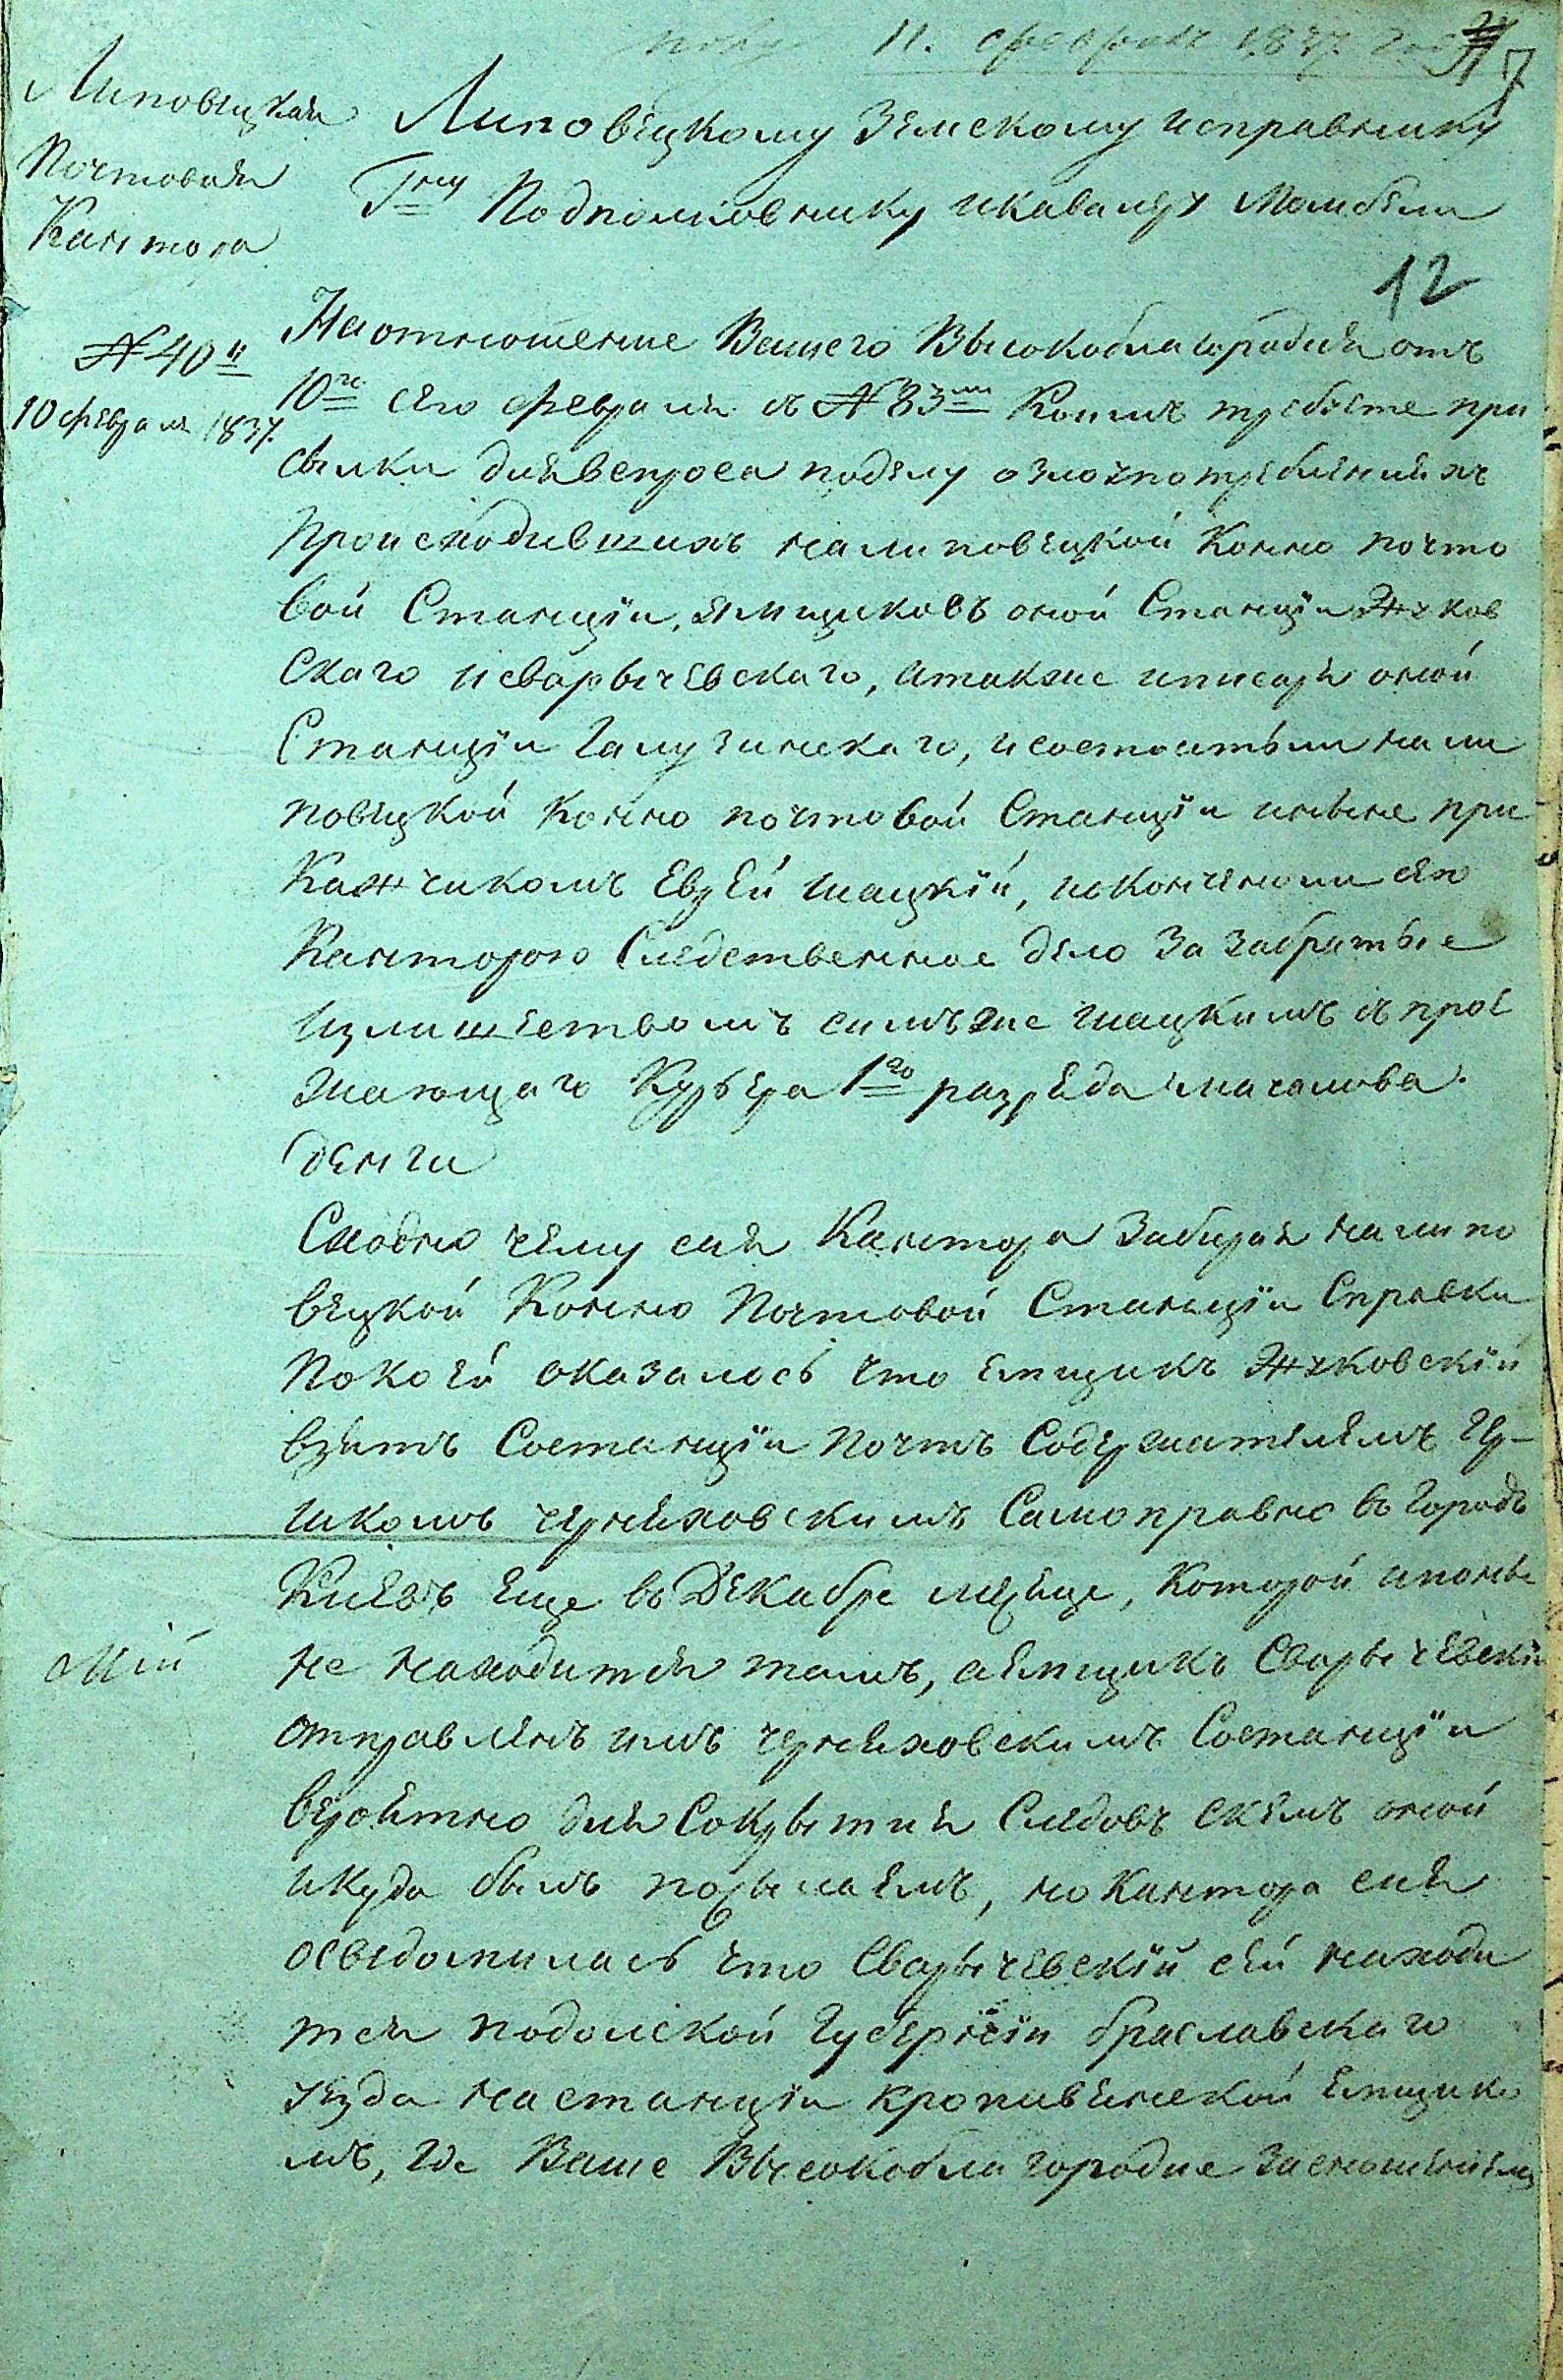 11. февраля 1837. года
Липовецкая
Почтовая
Кантора
№ 40й
10 февраля 1837.
Липовецкому Земскому исправнику
Гну Подполковнику икавалеру
12
Наотношение Вашего Высокоблагородия отъ
10го сего февраля за № 83мъ Коимъ требуете при
сылки длявспроса поделу озлоупотребленияхъ
происходившихъ налиповецкой Конно почто
вой Станціи, ямщиковъ оной Станціи Жуков
Скаго исварычевскаго, атакже иписаря оной
Станціи Галузинскаго, исостоитъли нали
повецкой Конно почтовой Станціи иныне при
Кащикомъ Еврей шацкій, иоконченоли сею
Канторою Следственное дело За забратые
Излишествомъ симъже шацкимъ съ прое
жающаго Курьера 1го разряда мачалова
денги
Сходно чему сия Кантора Забирая налипо
вецкой Конно Почтовой Станціи Справки
Покоей оказалось что емщикъ Жуковскій
взятъ Состанціи почтъ Содержателемъ Гер-
шкомъ черняховскимъ Самоправно въ Городъ
Киевъ еще въ Декабре месяце, Которой ипоныне
не находится тамъ, аямщикъ Сварычевскій
отправленъ имъ черняховскимъ Состанціи
вероятно для Сокрытия Следовъ скемъ оной
икуда былъ посылаемъ, но Кантора сия
осведомилась что Сварычевскій сей находи
тся подолской Губерніи браславскаго
уезда настанціи кропивянской емщико
мъ, где Ваше Высокоблагородие